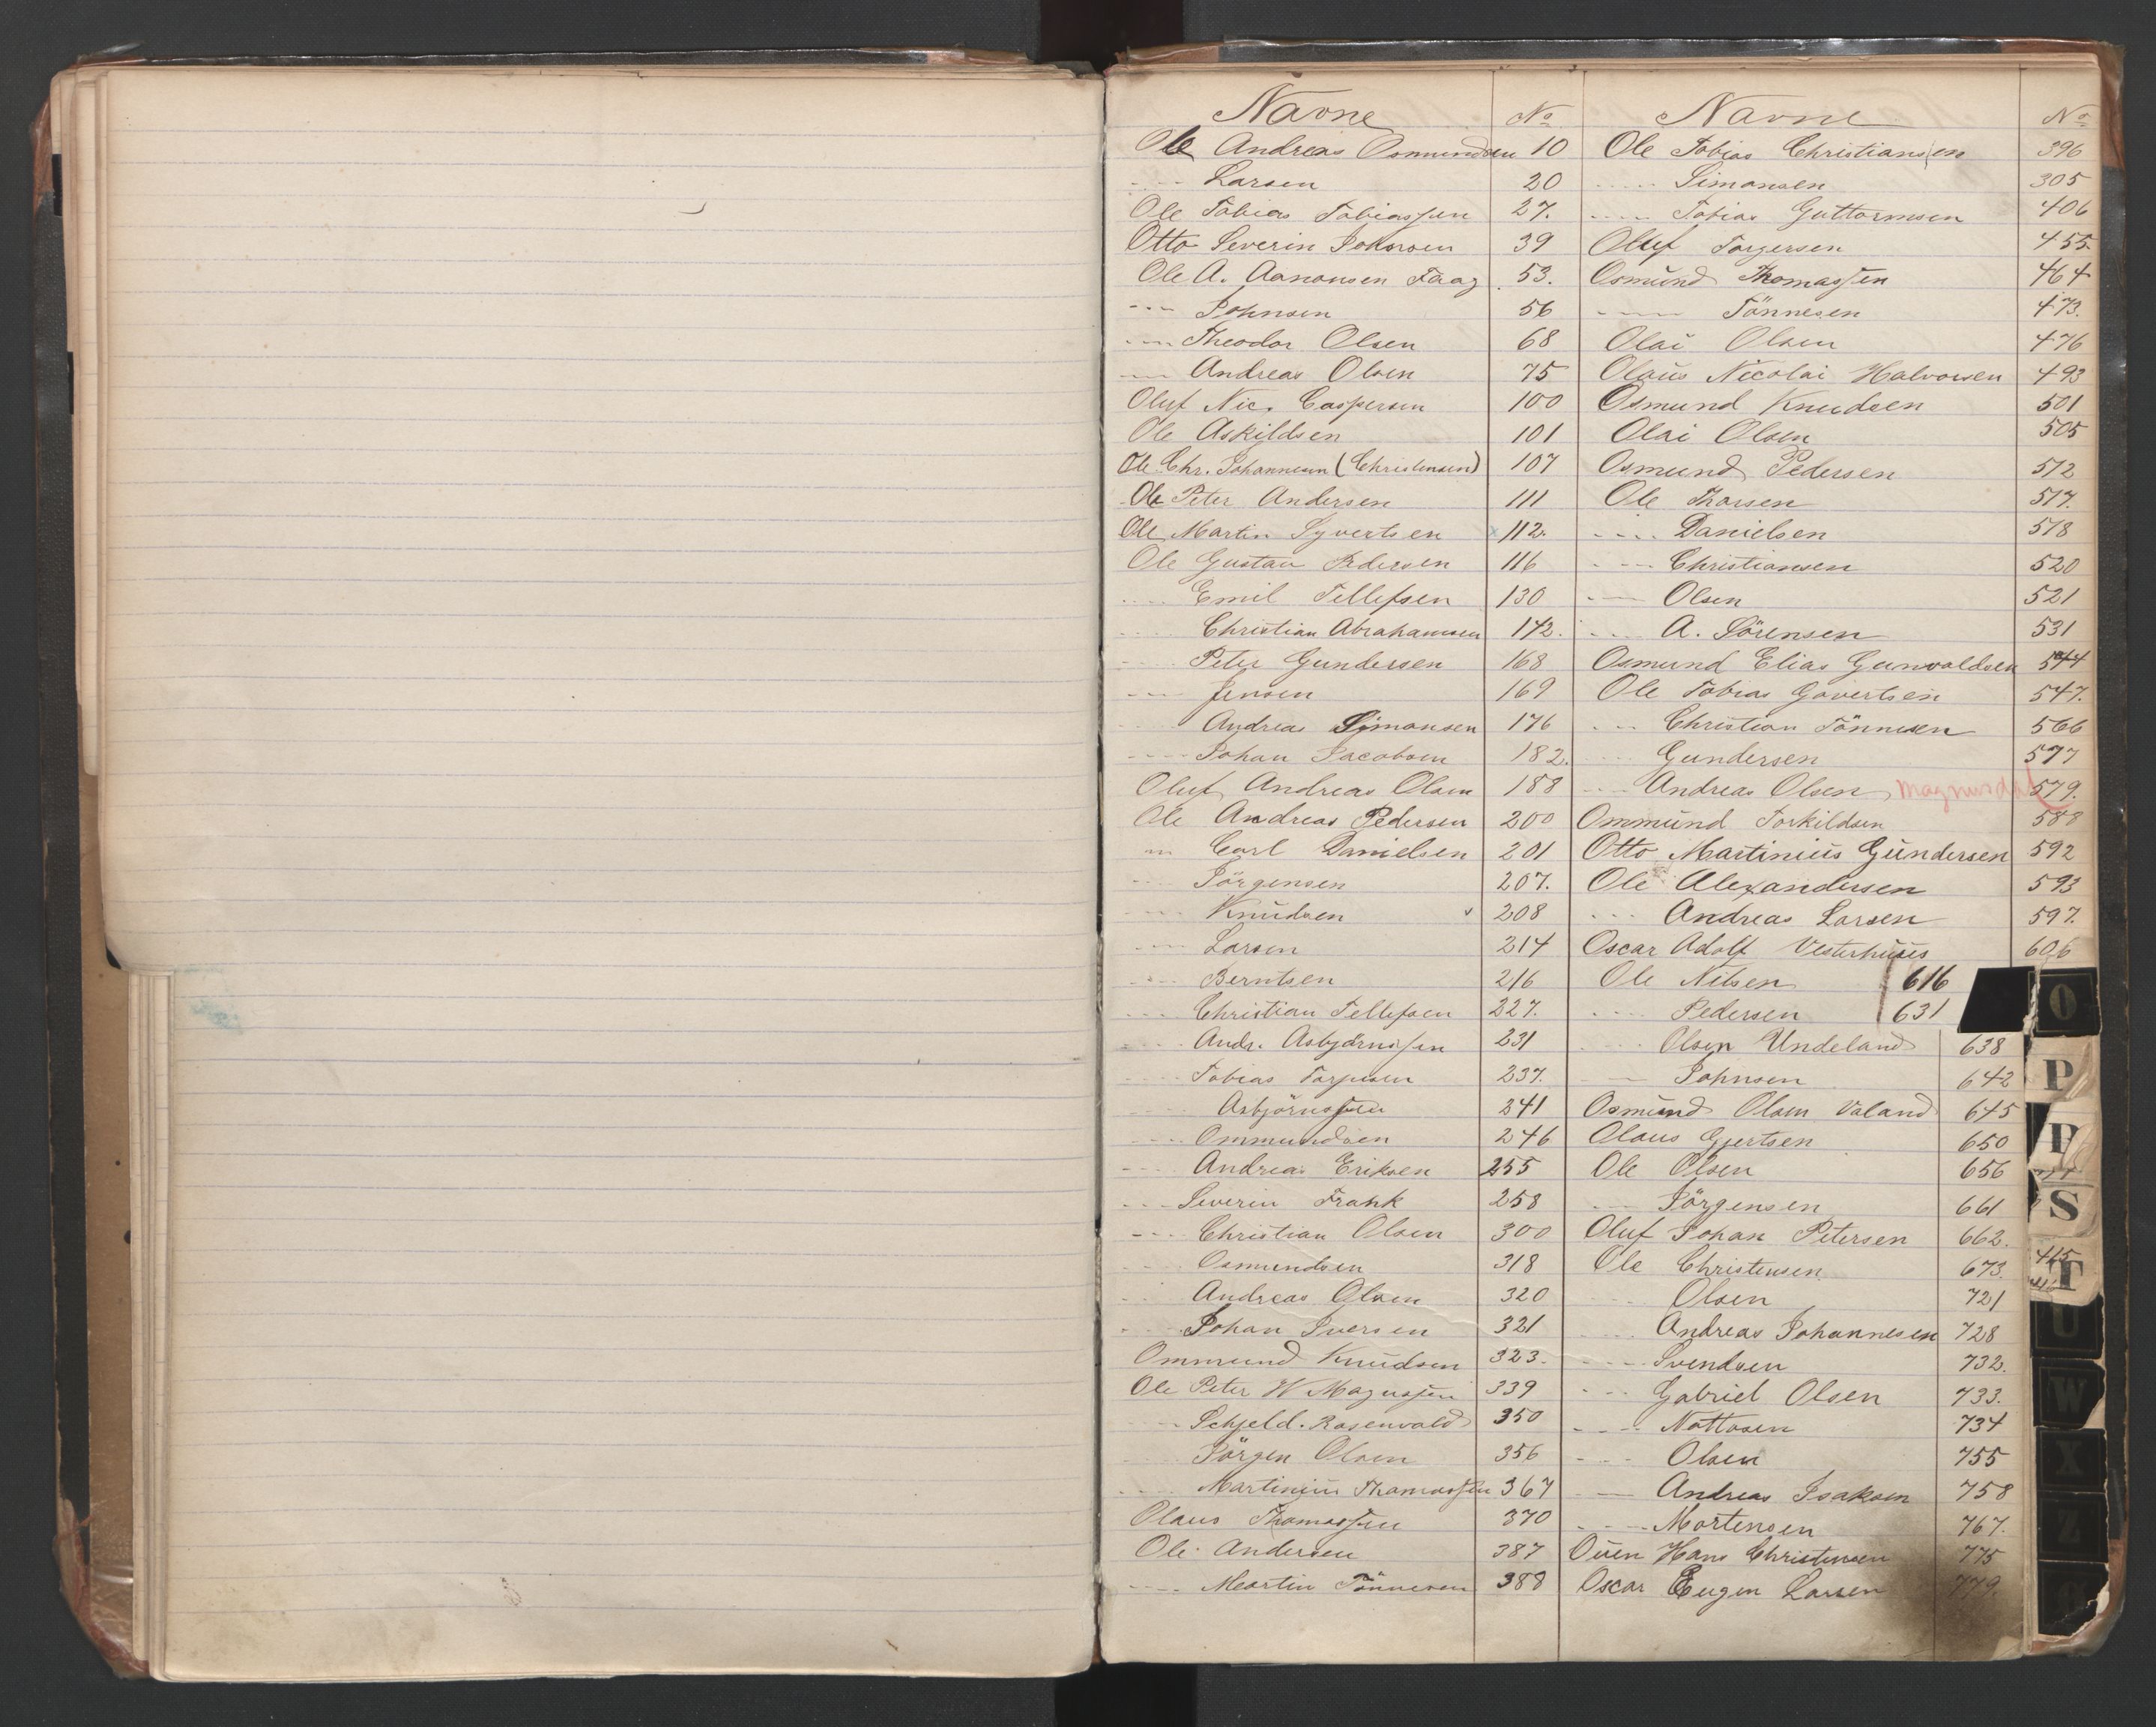 Navne No
Ole Andreas Osmundsen 10
---- Larsen 20
Ole Tobias Tobiassen 27.
Otto Severin Johnsen 39
Ole A. Aanonsen Faag 53.
---- Johnsen 56
---- Theodor Olsen 68
---- Andreas Olsen 75
Oluf Nic. Caspersen 100
Ole Askildsen 101
Ole Chr. Johannesen (Christensen) 107
Ole Peter Andersen 111
Ole Martin Syvertsen x 112.
Ole Gustav Pedersen 116
---- Emil Tellefsen 130
---- Christian Abrahamsen 142.
---- Peter Gundersen 168
---- Jensen 169
---- Andreas Simonsen 176
---- Johan Jacobsen 182.
Oluf Andreas Olsen 188
Ole Andreas Pedersen 200
---- Carl Danielsen 201
---- Jörgensen 207.
---- Knudsen 208
---- Larsen 214
---- Berntsen 216
---- Christian Tellefsen 227.
---- Andr. Asbjörnssen 231
---- Tobias Torjusen 237.
Asbjörnssen 241
---- Ommundsen 246
---- Andreas Eriksen 255
---- Severin Frank 258
---- Christian Olsen 300
---- Osmundsen 318
---- Andreas Olsen 320
---- Johan Iversen 321
Ommund Knudsen 323.
Ole Peter W Magnussen 339
---- Schjeld. Rosenvold 350
---- Jörgen Olsen 356
---- Martinius Thomassen 367
Olaus Thomassen 370
Ole Andersen 387
---- Martin Tönnesen 388
Navne No
Ole Tobias Christiansen 396
---- Simonsen 305
---- Tobias Guttormsen 406
Oluf Torgersen 455.
Osmund Thomassen 464
---- Tönnesen 473.
Olai Olsen 476
Olaus Nicolai Halvorsen 493
Osmund Knudsen 501
Olai Olsen 505
Osmund Pedersen 512
Ole Thorsen 517.
---- Danielsen 518
---- Christiansen 520
---- Olsen 521
---- A. Sörensen 531
Osmund Elias Gunvaldsen 544
Ole Tobias Govertsen 547.
---- Christian Tönnesen 566
---- Gundersen 577
---- Andreas Olsen, Magnusdal 579.
Ommund Torkildsen 588
Otto Martinius Gundersen 592
Ole Alexandersen 593
---- Andreas Larsen 597.
Oscar Adolf Vesterhuus 606
Ole Nilsen 616
---- Pedersen 631
---- Olsen Undeland 638
---- Johnsen 642
Osmund Olsen Valand 645
Olaus Gjertsen 650
Ole Olsen 656
---- Jörgensen 661
Oluf Johan Petersen 662.
Ole Christensen 673.
---- Olsen 721
---- Andreas Johannesen 728
---- Svendsen 732.
---- Gabriel Olsen 733.
---- Nottosen 734
---- Olsen 755
---- Andreas Isaksen 758
---- Mortensen 767.
Ouen Hans Christensen 775
Oscar Eugen Larsen 779.
O
P
P
S
415
T
U
W
X
Z